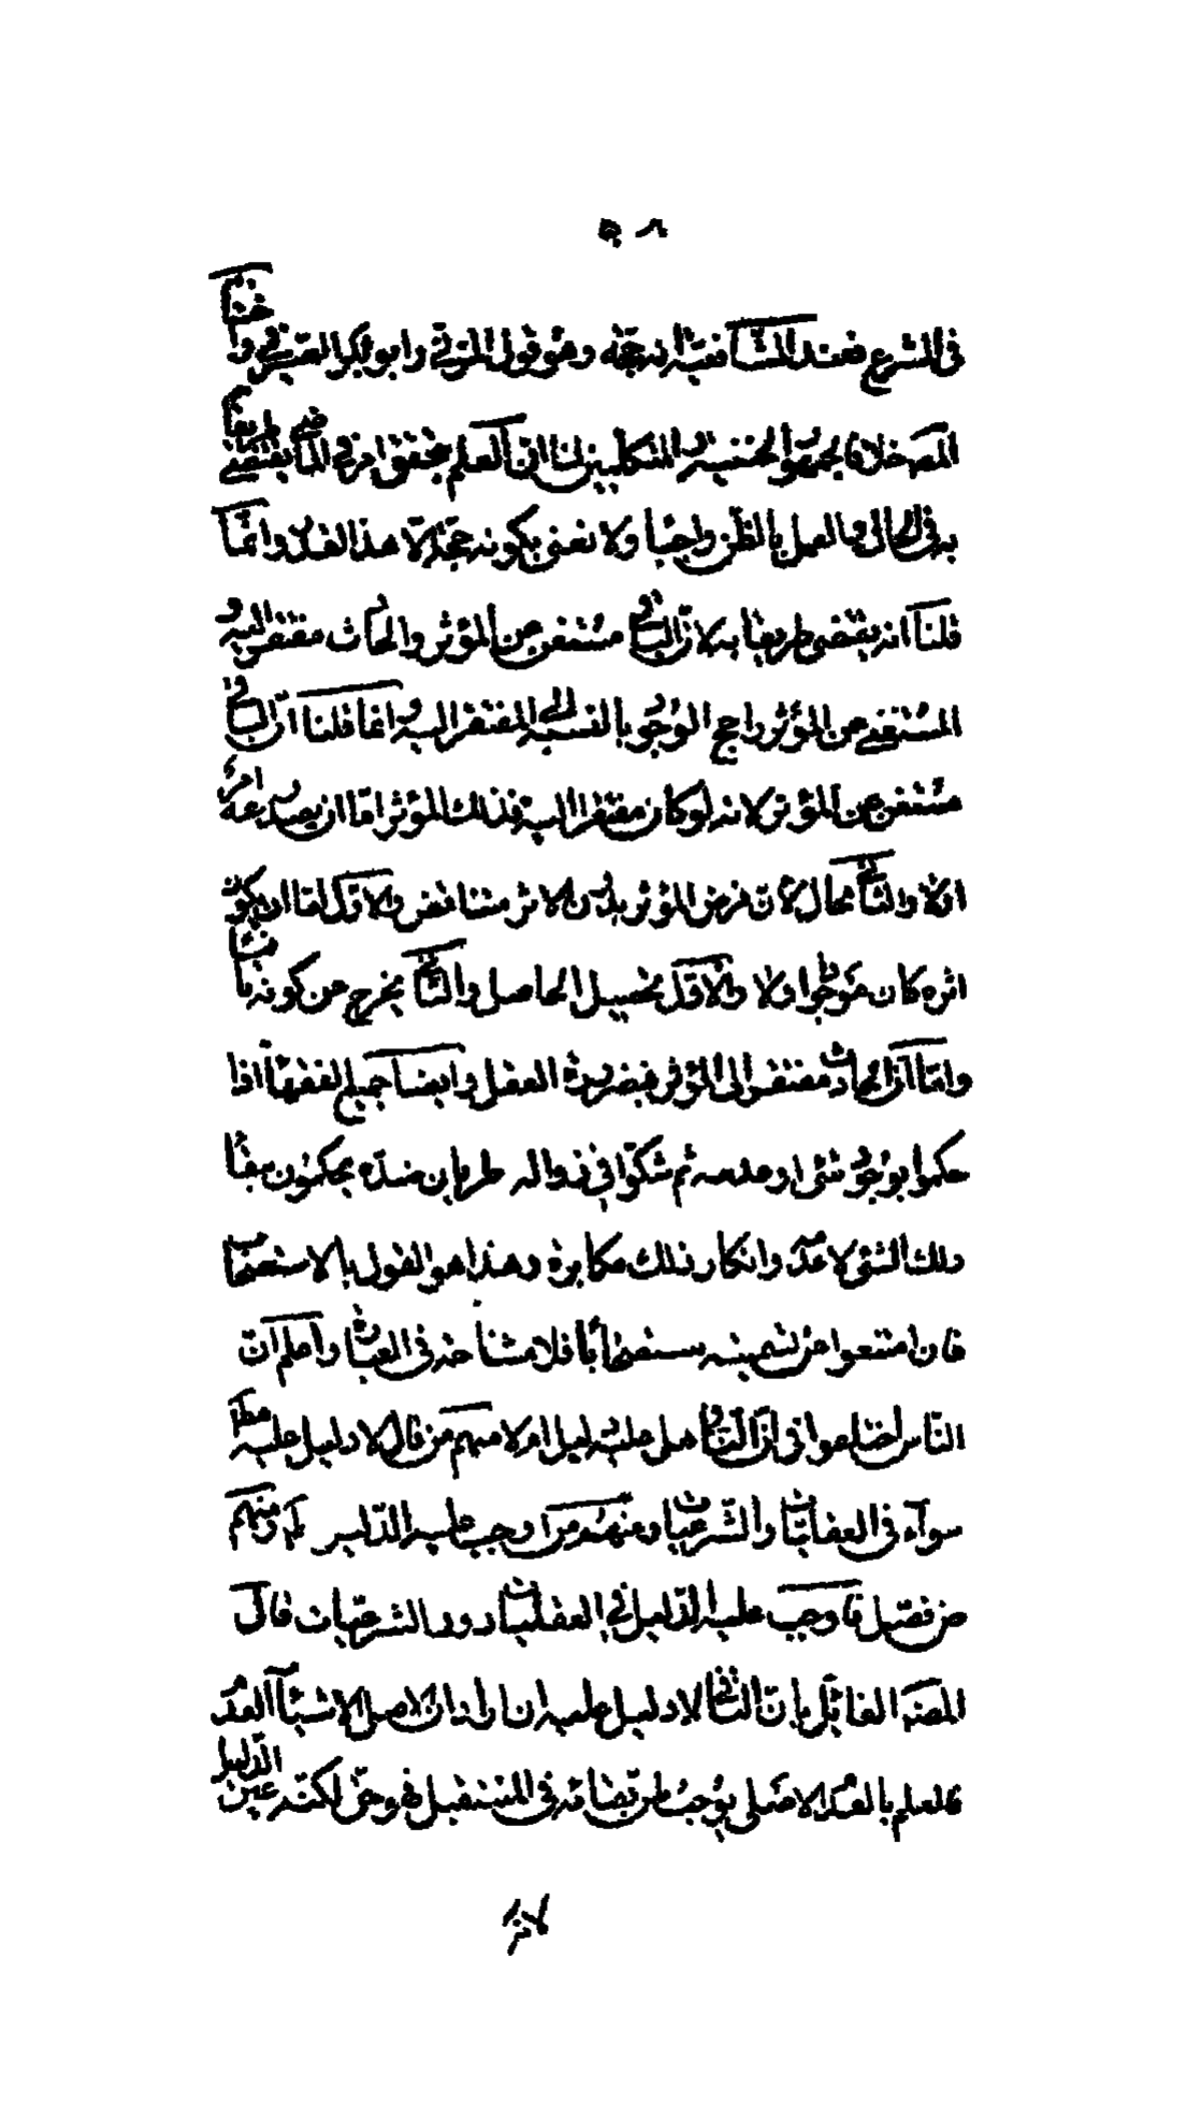 في الشرع فعند الشافعية انه حجة وهو قول المزني وابو بكر الصيرفي واختاره
المصـ خلافا لجمهور الحنفية والمتكلمين لنا ان العلم بتحقق امر في الماضي يقتضي طريقا
به في الحال والعمل بالظن واجب ولا نعنى بكونه حجة الا هذا القدر وانما
قلنا انه يقتضى طريقا به لان الباقي مستغن عن المؤثر والحادث مفتقر اليه و
المستغنى عن المؤثر راجح الوجود بالنسبة الى المفتقر اليه وانما قلنا ان الباقي
مستغن عن المؤثر لانه لو كان مفتقرا اليه فذلك المؤثر اما ان يصدر عنه امر
اولا والثاني محال لان فرض المؤثر بدون الاثر متناقض والاول اما ان يكون
اثره كان موجودا اولا والاول تحصيل الحاصل والثاني يخرج عن كونه باقيا
واما ان الحادث مفتقر الى المؤثر فبضرورة العقل وايضا جميع الفقهاء اذا
حكموا بوجود شئ او عدمه ثم شكوا في زواله طريان ضده يحكمون ببقاء
ذلك الشئ لا عدمه وانكار ذلك مكابرة وهذا هو القول بالاستصحاب
فان امتنعوا عن تسميته استصحابا فلا مشاحة في العبارة واعلم ان
الناس اختلفوا في ان النافي هل عليه دليل ام لا منهم من قال لا دليل عليه مطلقا
سواء في العقليات والشرعيات ومنهم من اوجب عليه الدليل ومنهم
من فصل فاوجب عليه الدليل في العقليات دون الشرعيات قال
المصـ القائل بان النافي لا دليل عليه ان اراد ان الاصل الاشياء العدم
فالعلم بالعدم الاصلى يوجب ظن بقائه في المستقبل فهو حق لكنه عين الدليل